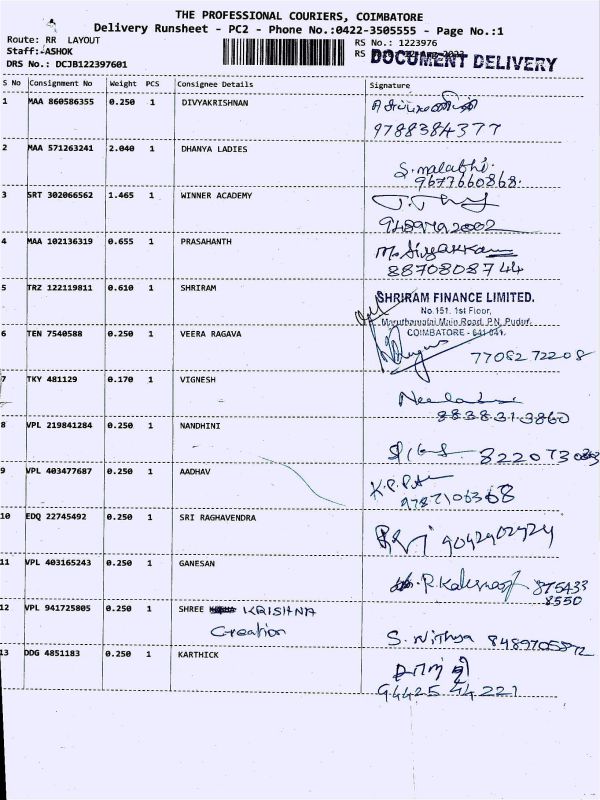 THE PROFESSIONAL COURIERS, COIMBATORE
Delivery Runsheet - PC2 - Phone No.:0422-3505555 - Page No.:1
Route: RR LAYOUT
RS No.: 1223976
Staff:-ASHOK
RS
DOCUMENT DELIVERY
DRS No.: DCJB122397601
S No Consignment No Weight PCS Consignee Details Signature
1 MAA 860586355 0.250 1 DIVYAKRISHNAN
9788384377
2 MAA 571263241 2.040 1 DHANYA LADIES
S.malathi.
9677660868.
3 SRT 302066562 1.465 1 WINNER ACADEMY
4 MAA 102136319 0.655 1 PRASAHANTH
8870808744
5 TRZ 122119811 0.610 1 SHRIRAM
SHRIRAM FINANCE LIMITED.
No.151, 1st Floor,
Maruthamalai Main Road, P.N. Pudur,
COIMBATORE - 641 041.
6 TEN 7540588 0.250 1 VEERA RAGAVA
7708272208
7 TKY 481129 0.170 1 VIGNESH
8838313860
8 VPL 219841284 0.250 1 NANDHINI
9 VPL 403477687 0.250 1 AADHAV
9787106368
10 EDQ 22745492 0.250 1 SRI RAGHAVENDRA
9042902924
11 VPL 403165243 0.250 1 GANESAN
875433
8550
12 VPL 941725805 0.250 1 SHREE KRISHNA
Creation
S. Nithya
13 DDG 4851183 0.250 1 KARTHICK
94425 44 221